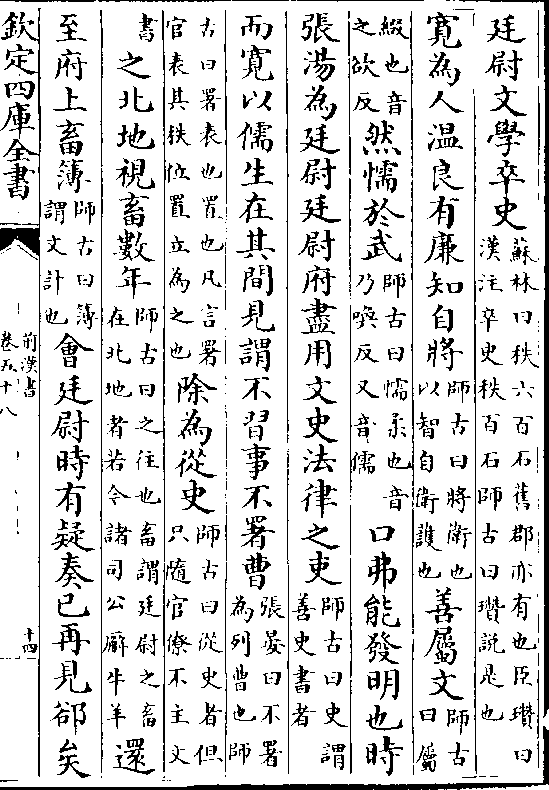 廷尉文學卒史蘇林曰秩六百石舊郡亦有也臣瓚曰漢注卒史秩百石師古曰瓚説是也
寛為人温良有廉知自將師古曰將衛也以智自衛護也善屬文師古曰屬
綴也音之欲反然懦於武師古曰懦柔也音乃喚反又音儒口弗能發明也時
張湯為廷尉廷尉府盡用文史法律之吏師古曰史謂善史書者
而寛以儒生在其間見謂不習事不署曹張晏曰不署為列曹也師
古曰署表也置也凡言署官表其秩位置立為之也除為從史師古曰從史者但只隨官僚不主文
書之北地視畜數年師古曰之往也畜謂廷尉之畜在北地者若令諸司公廨牛羊還
至府上畜簿師古曰簿謂文計也會廷尉時有疑奏已再見郤矣
欽定四庫全書
前漢書
卷五十八
十四